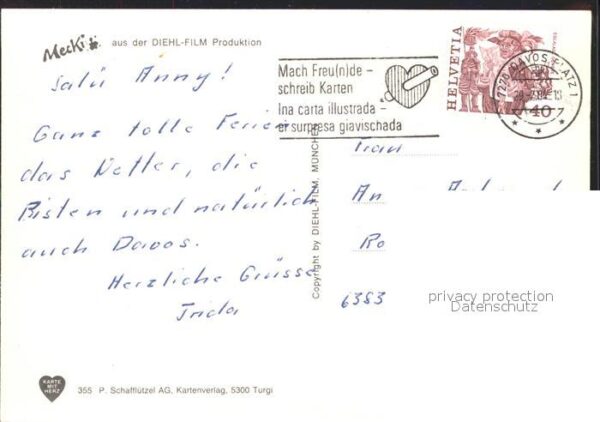 Mecki
aus der DIEHL-FILM Produktion
Salü Anny!
Ganz tolle Ferien
das Wetter, die
Pisten und natürlich
auch Davos.
Herzliche Grüsse
Frida
Mach Freu(n)de -
schreib Karten
Ina carta illustrada -
er surpresa giavischada
HELVETIA
40
7270 DAVOS PLATZ 1
Copyright by DIEHL-FILM, MÜNCHEN
Frau
An
Ro
6383
privacy protection
Datenschutz
KARTE
MIT
HERZ
355 P. Schafflützel AG, Kartenverlag, 5300 Turgi